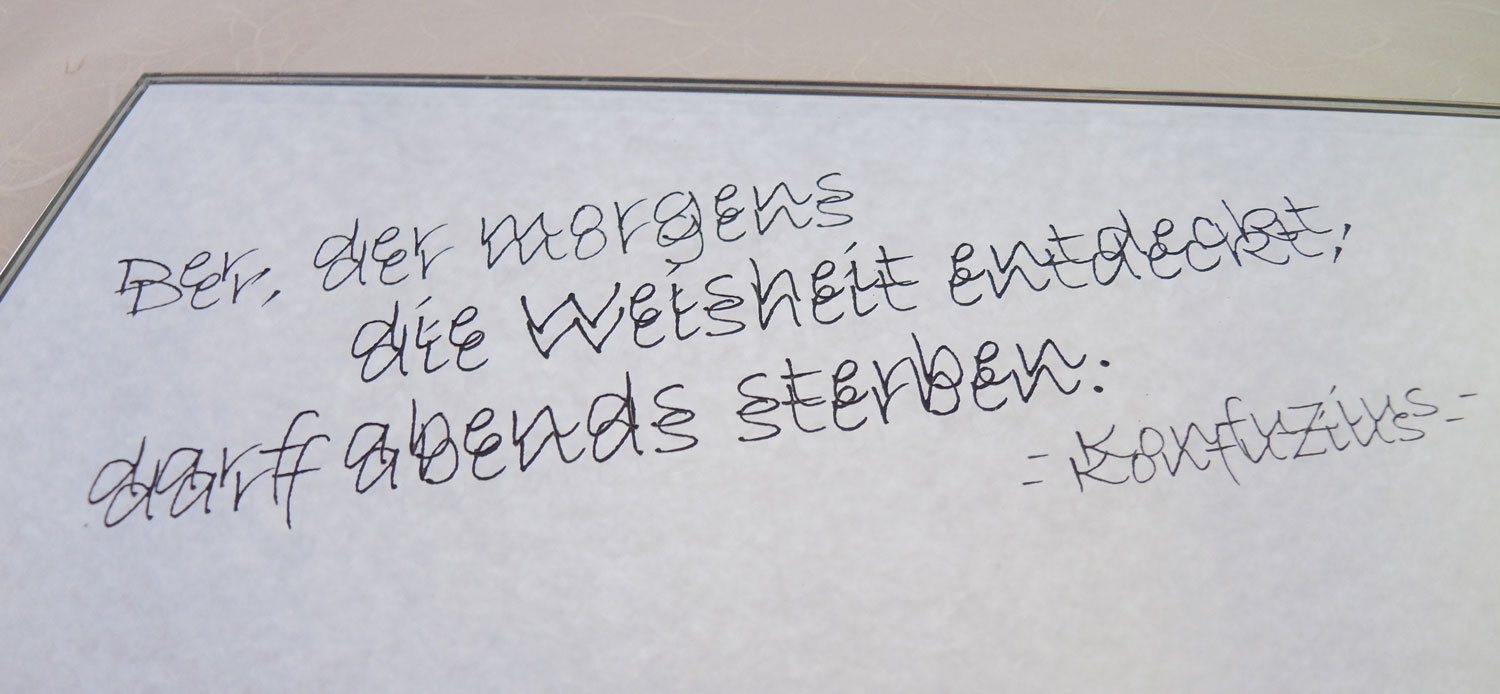 Der, der morgens
die Weisheit entdeckt,
darf abends sterben.
- Konfuzius -